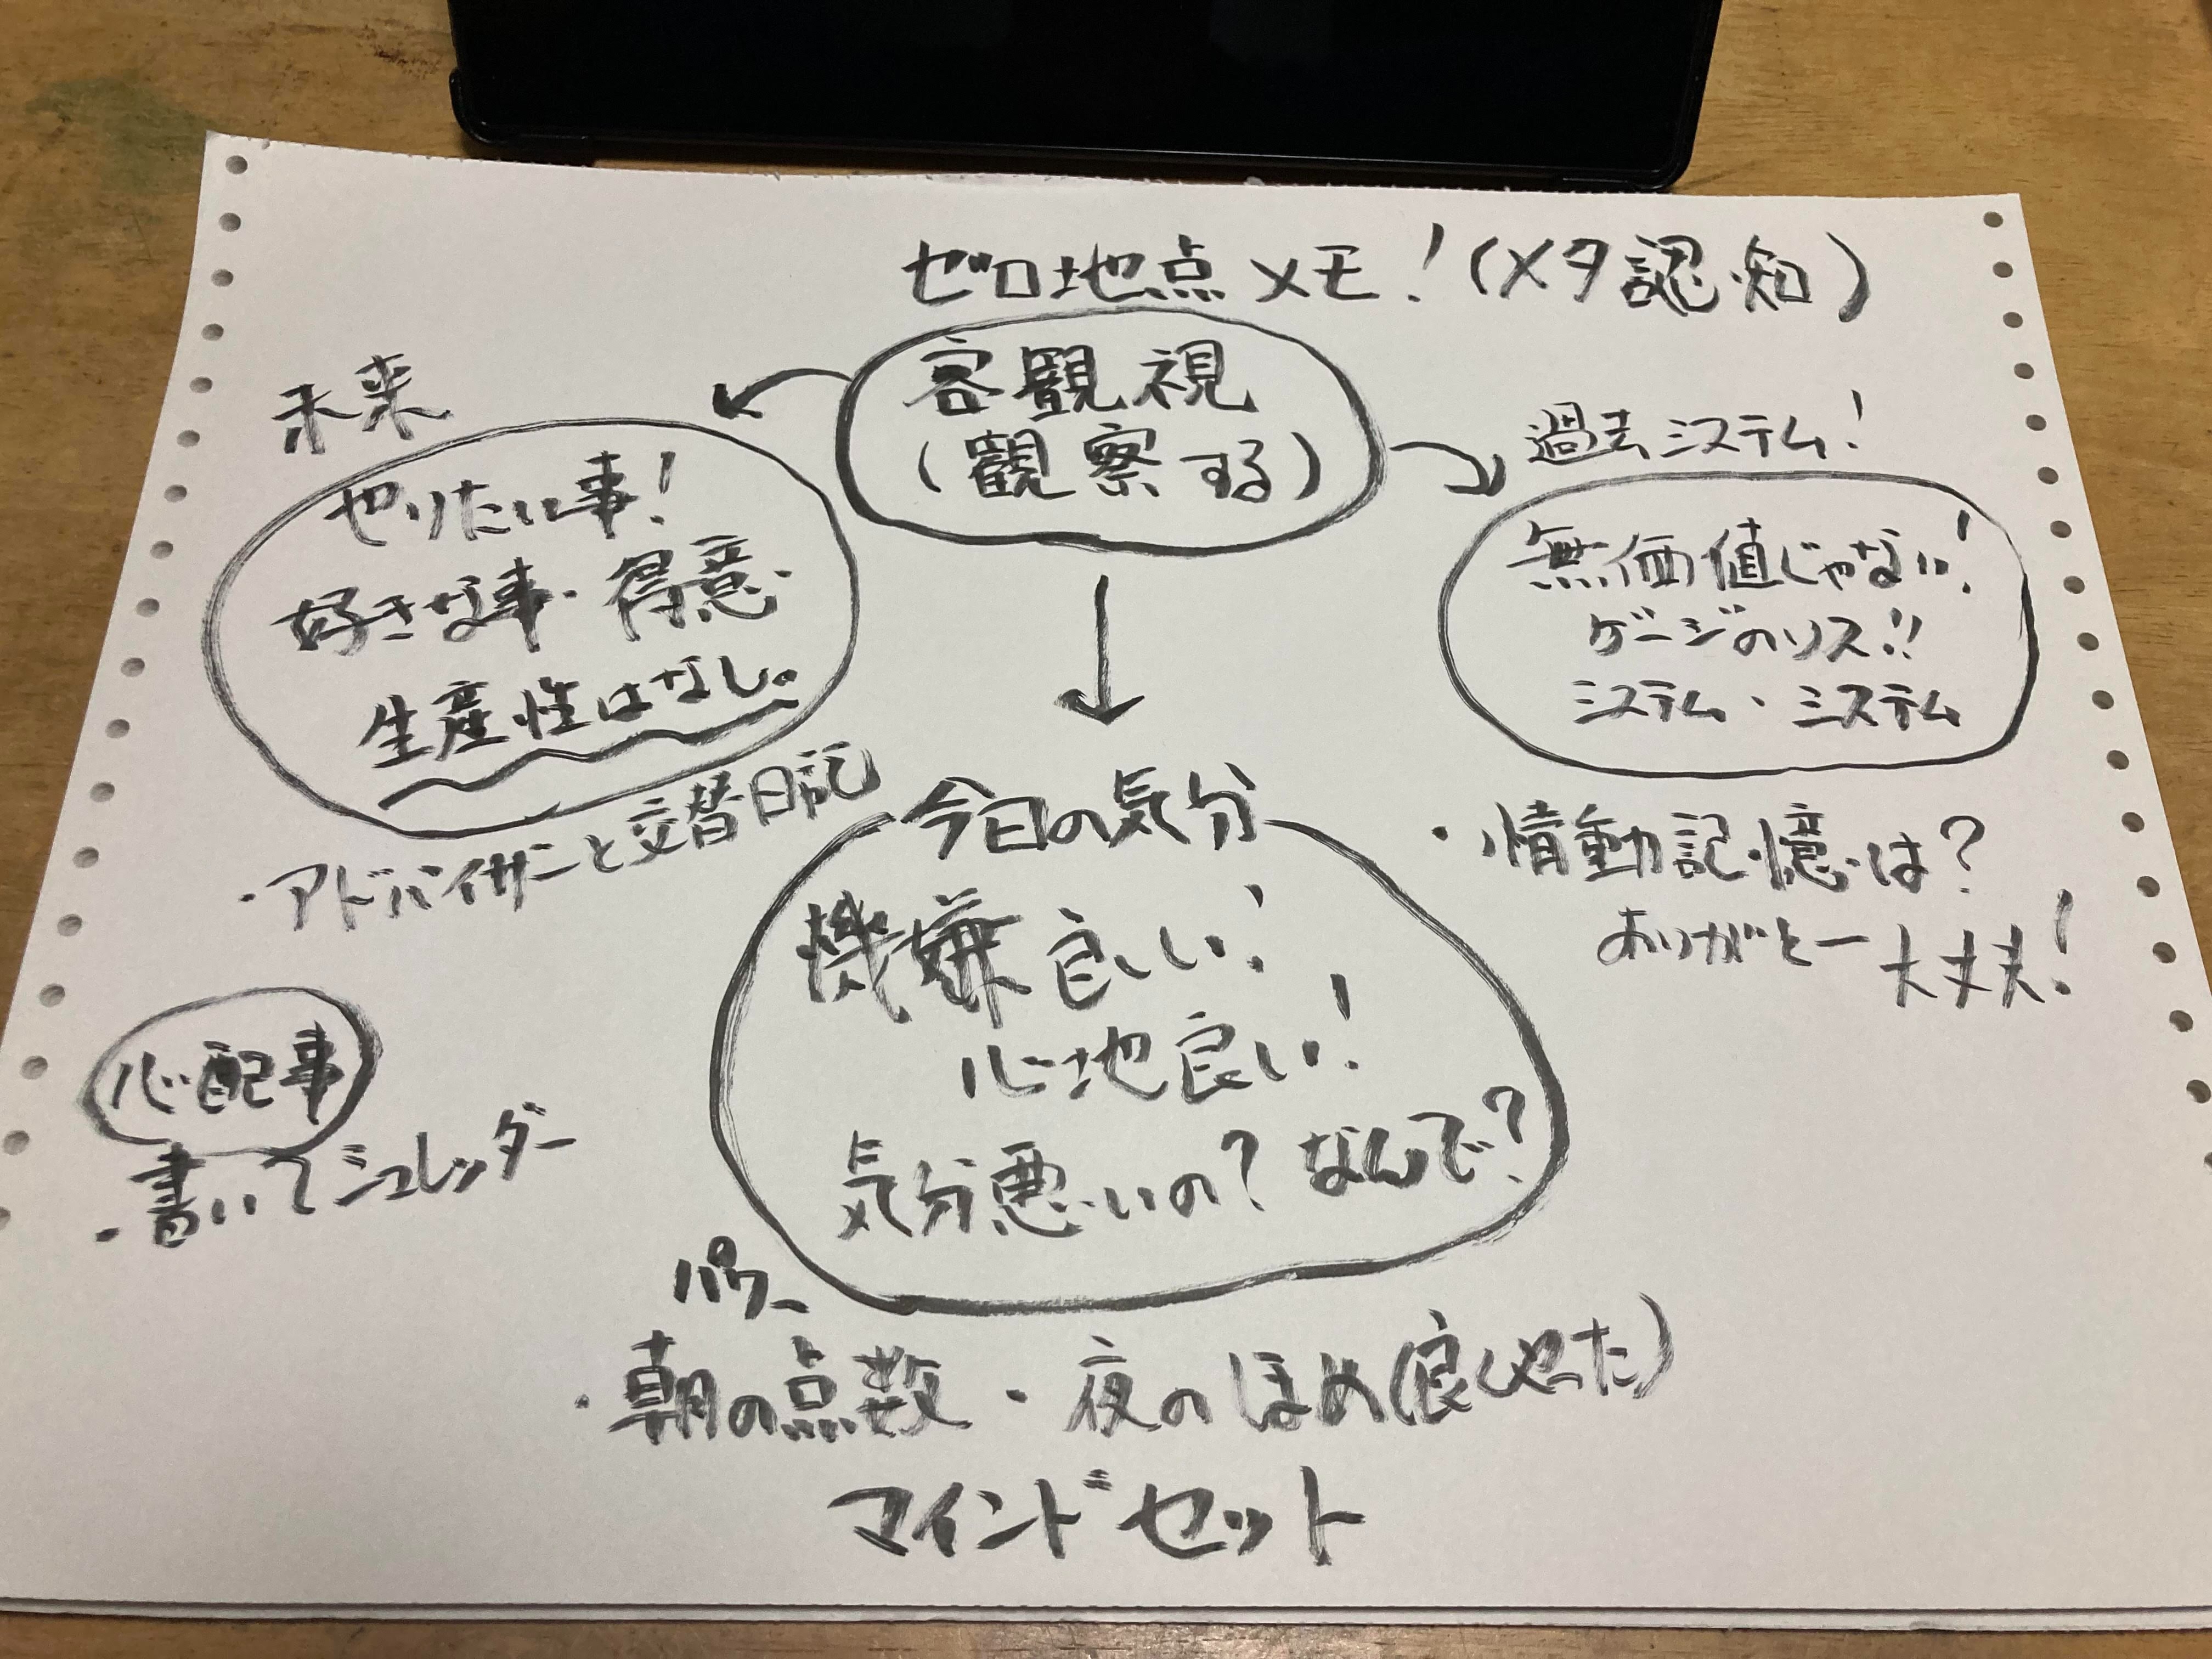 ゼロ地点メモ!(メタ認知)
客観視
(観察する)
未来
やりたい事!
好きな事・得意・
生産性はなし。
・アドバイザーと交替日記
過去システム!
無価値じゃない!
ゲージのリス!!
システム・システム
・情動記憶は?
ありがとー大丈夫!
今日の気分
機嫌良い!
心地良い!
気分悪いの?なんで?
心配事
・書いてシュレッダー
・朝の点数・夜のほめ(良くやった)
マインドセット